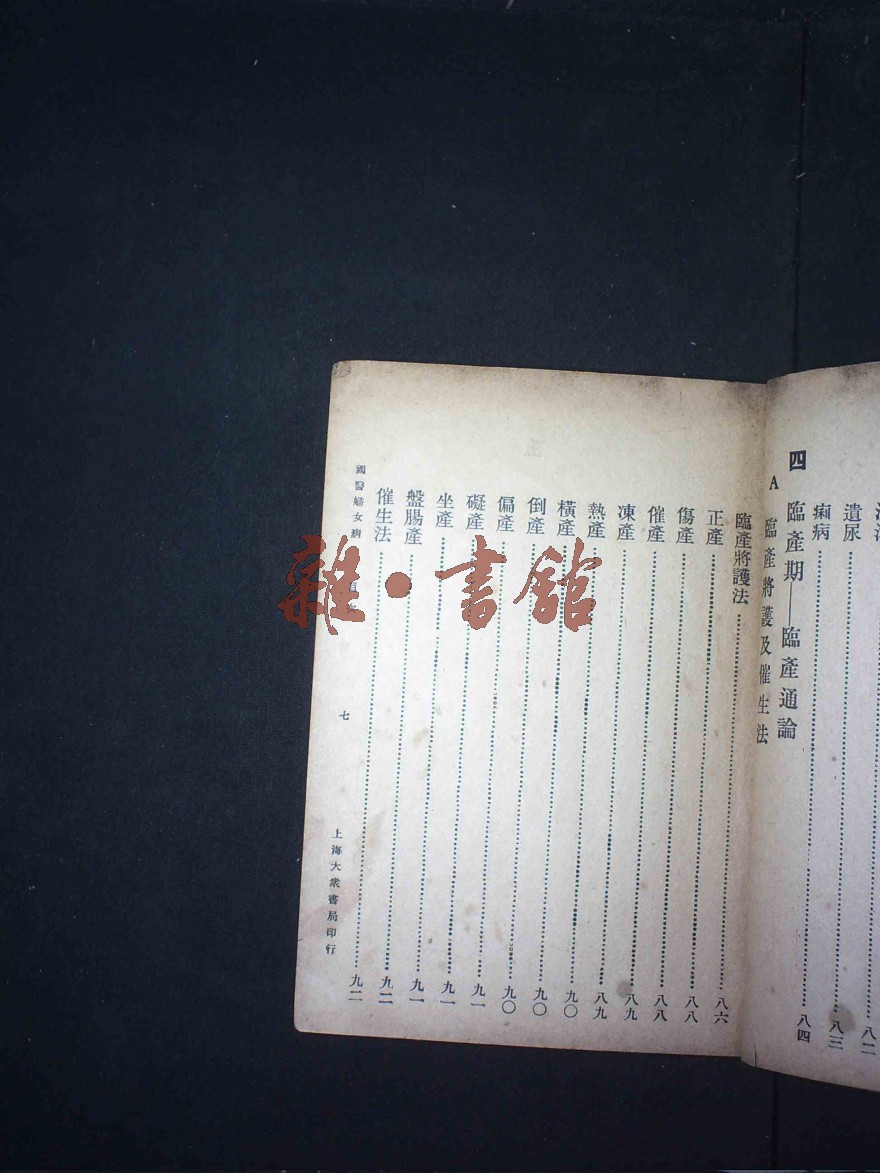 八二
遺尿……八三
痢病……八四
四 臨產期——臨產通論
A 臨產將護及催生法
臨產將護法……八六
正產……八八
傷產……八八
催產……八九
凍產……八九
熱產……九〇
橫產……九〇
倒產……九〇
偏產……九一
礙產……九一
坐產……九一
盤腸產……九二
催生法……九二
國醫婦女病 七 上海大衆書局印行
雜·書館